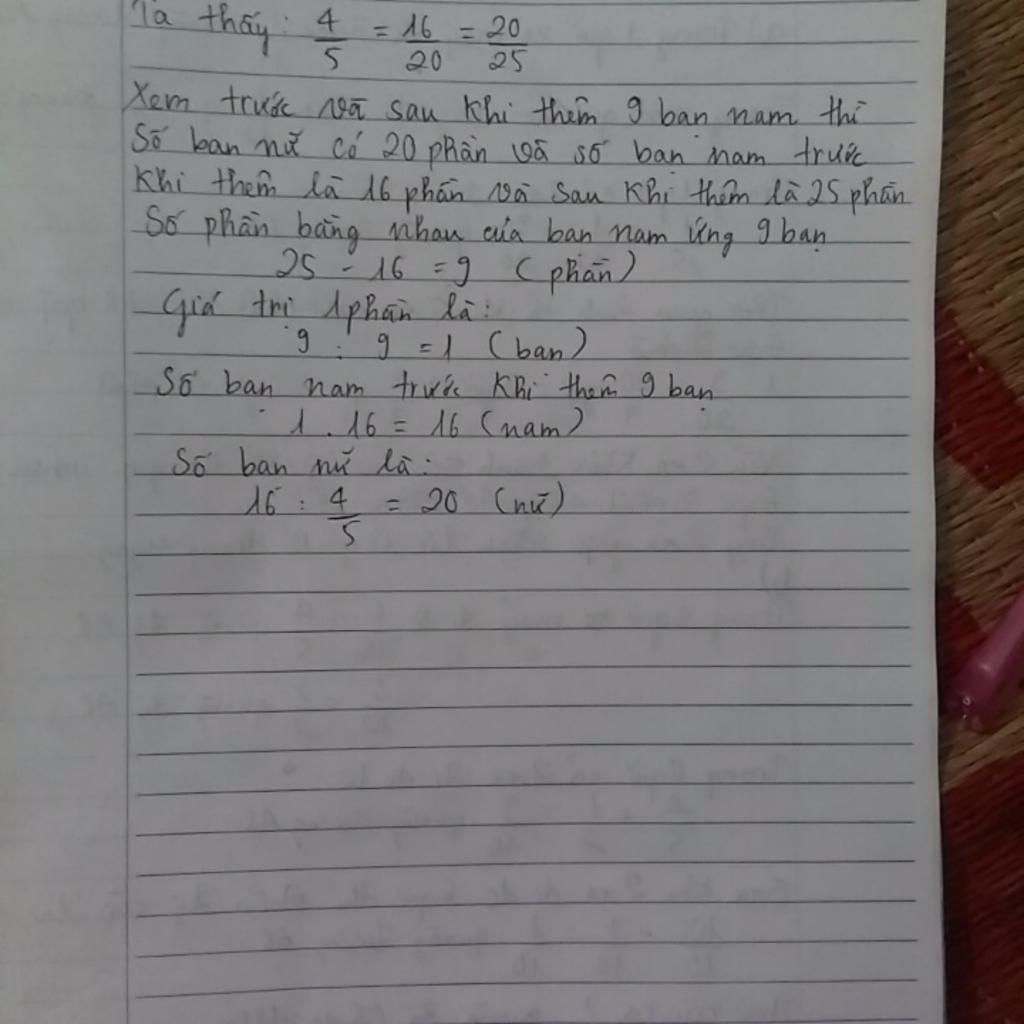 Ta thấy: 4/5 = 16/20 = 20/25
Xem trước và sau khi thêm 9 bạn nam thì
Số bạn nữ có 20 phần và số bạn nam trước
khi thêm là 16 phần và sau khi thêm là 25 phần
Số phần bằng nhau của bạn nam ứng 9 bạn
25 - 16 = 9 (phần)
Giá trị 1 phần là:
9 : 9 = 1 (bạn)
Số bạn nam trước khi thêm 9 bạn
1 . 16 = 16 (nam)
Số bạn nữ là:
16 : 4/5 = 20 (nữ)